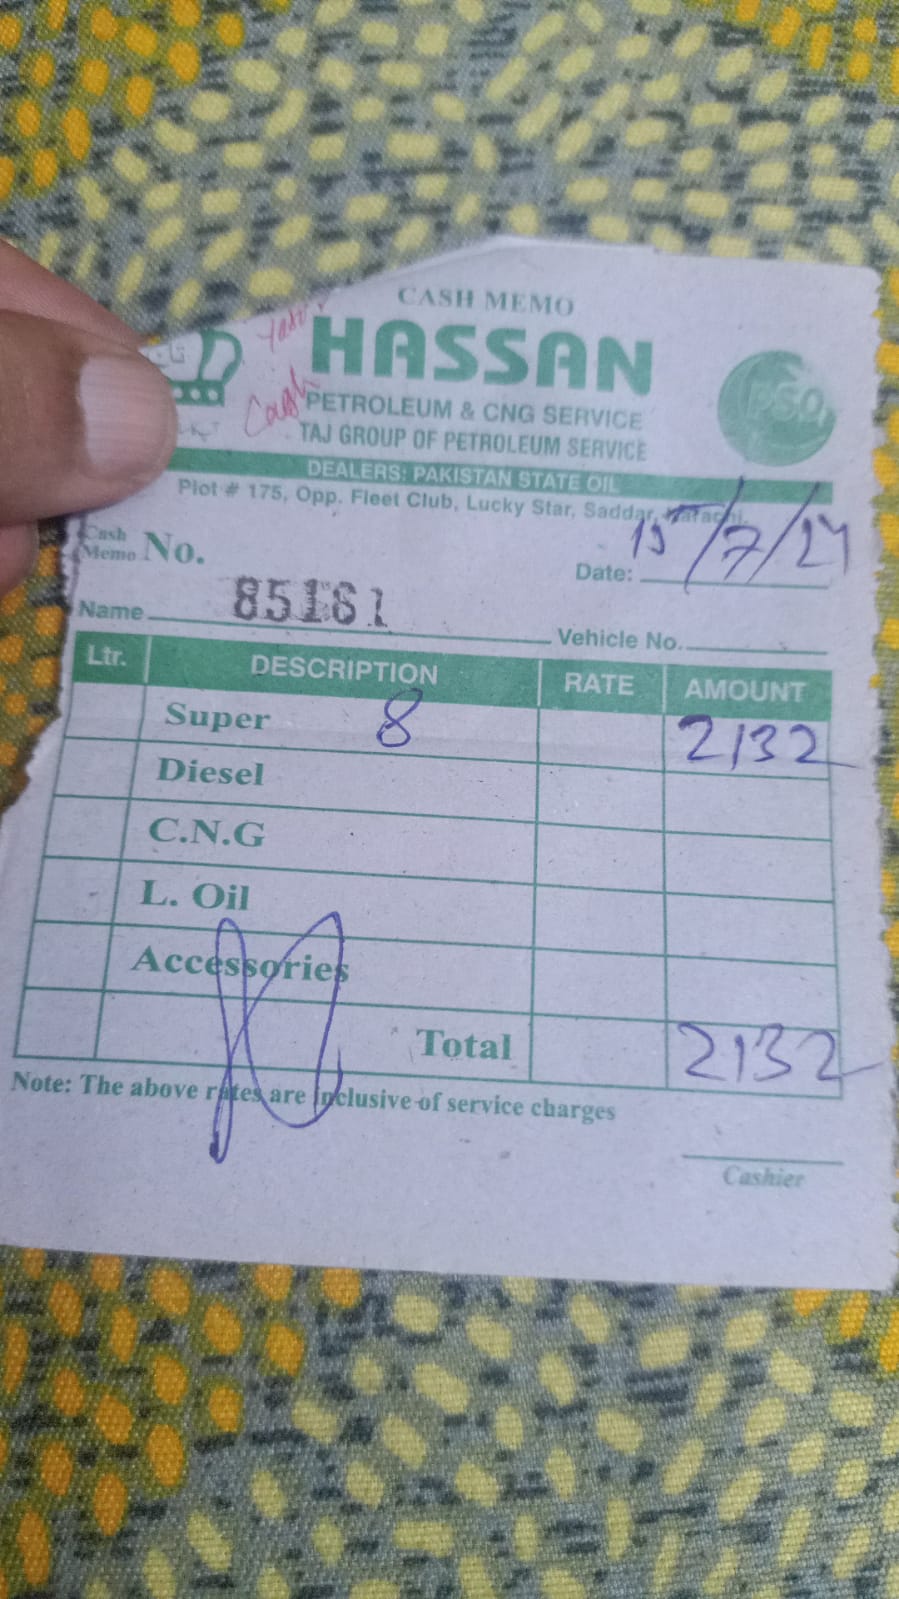 CASH MEMO
HASSAN
Cash
PETROLEUM & CNG SERVICE
TAJ GROUP OF PETROLEUM SERVICE
PSO
DEALERS: PAKISTAN STATE OIL
Plot # 175, Opp. Fleet Club, Lucky Star, Saddar, Karachi.
Cash Memo No. 85161
Date: 15/7/24
Name
Vehicle No.
Ltr. DESCRIPTION RATE AMOUNT
Super 8 2132
Diesel
C.N.G
L. Oil
Accessories
Total 2132
Note: The above rates are inclusive of service charges
Cashier